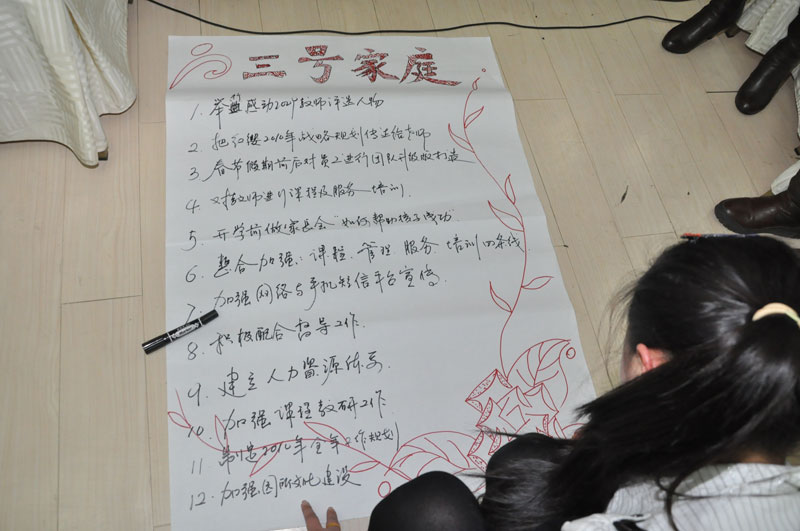 三号家庭
1. 举 感动2009教师评选人物
2 把 2010年战略规划传达给老师
3 春节假期前后对员工进行团队升级版打造
4 对教师进行课程及服务培训
5. 开学前做家长会"如何帮助孩子成功"
6. 整合加强:课程、管理、服务、培训四条线
7. 加强网络与手机短信平台宣传.
8. 积极配合督导工作.
9. 建立人力资源体系
10. 加强课程教研工作.
11 制定2010年全年工作规划
12. 加强团队文化建设